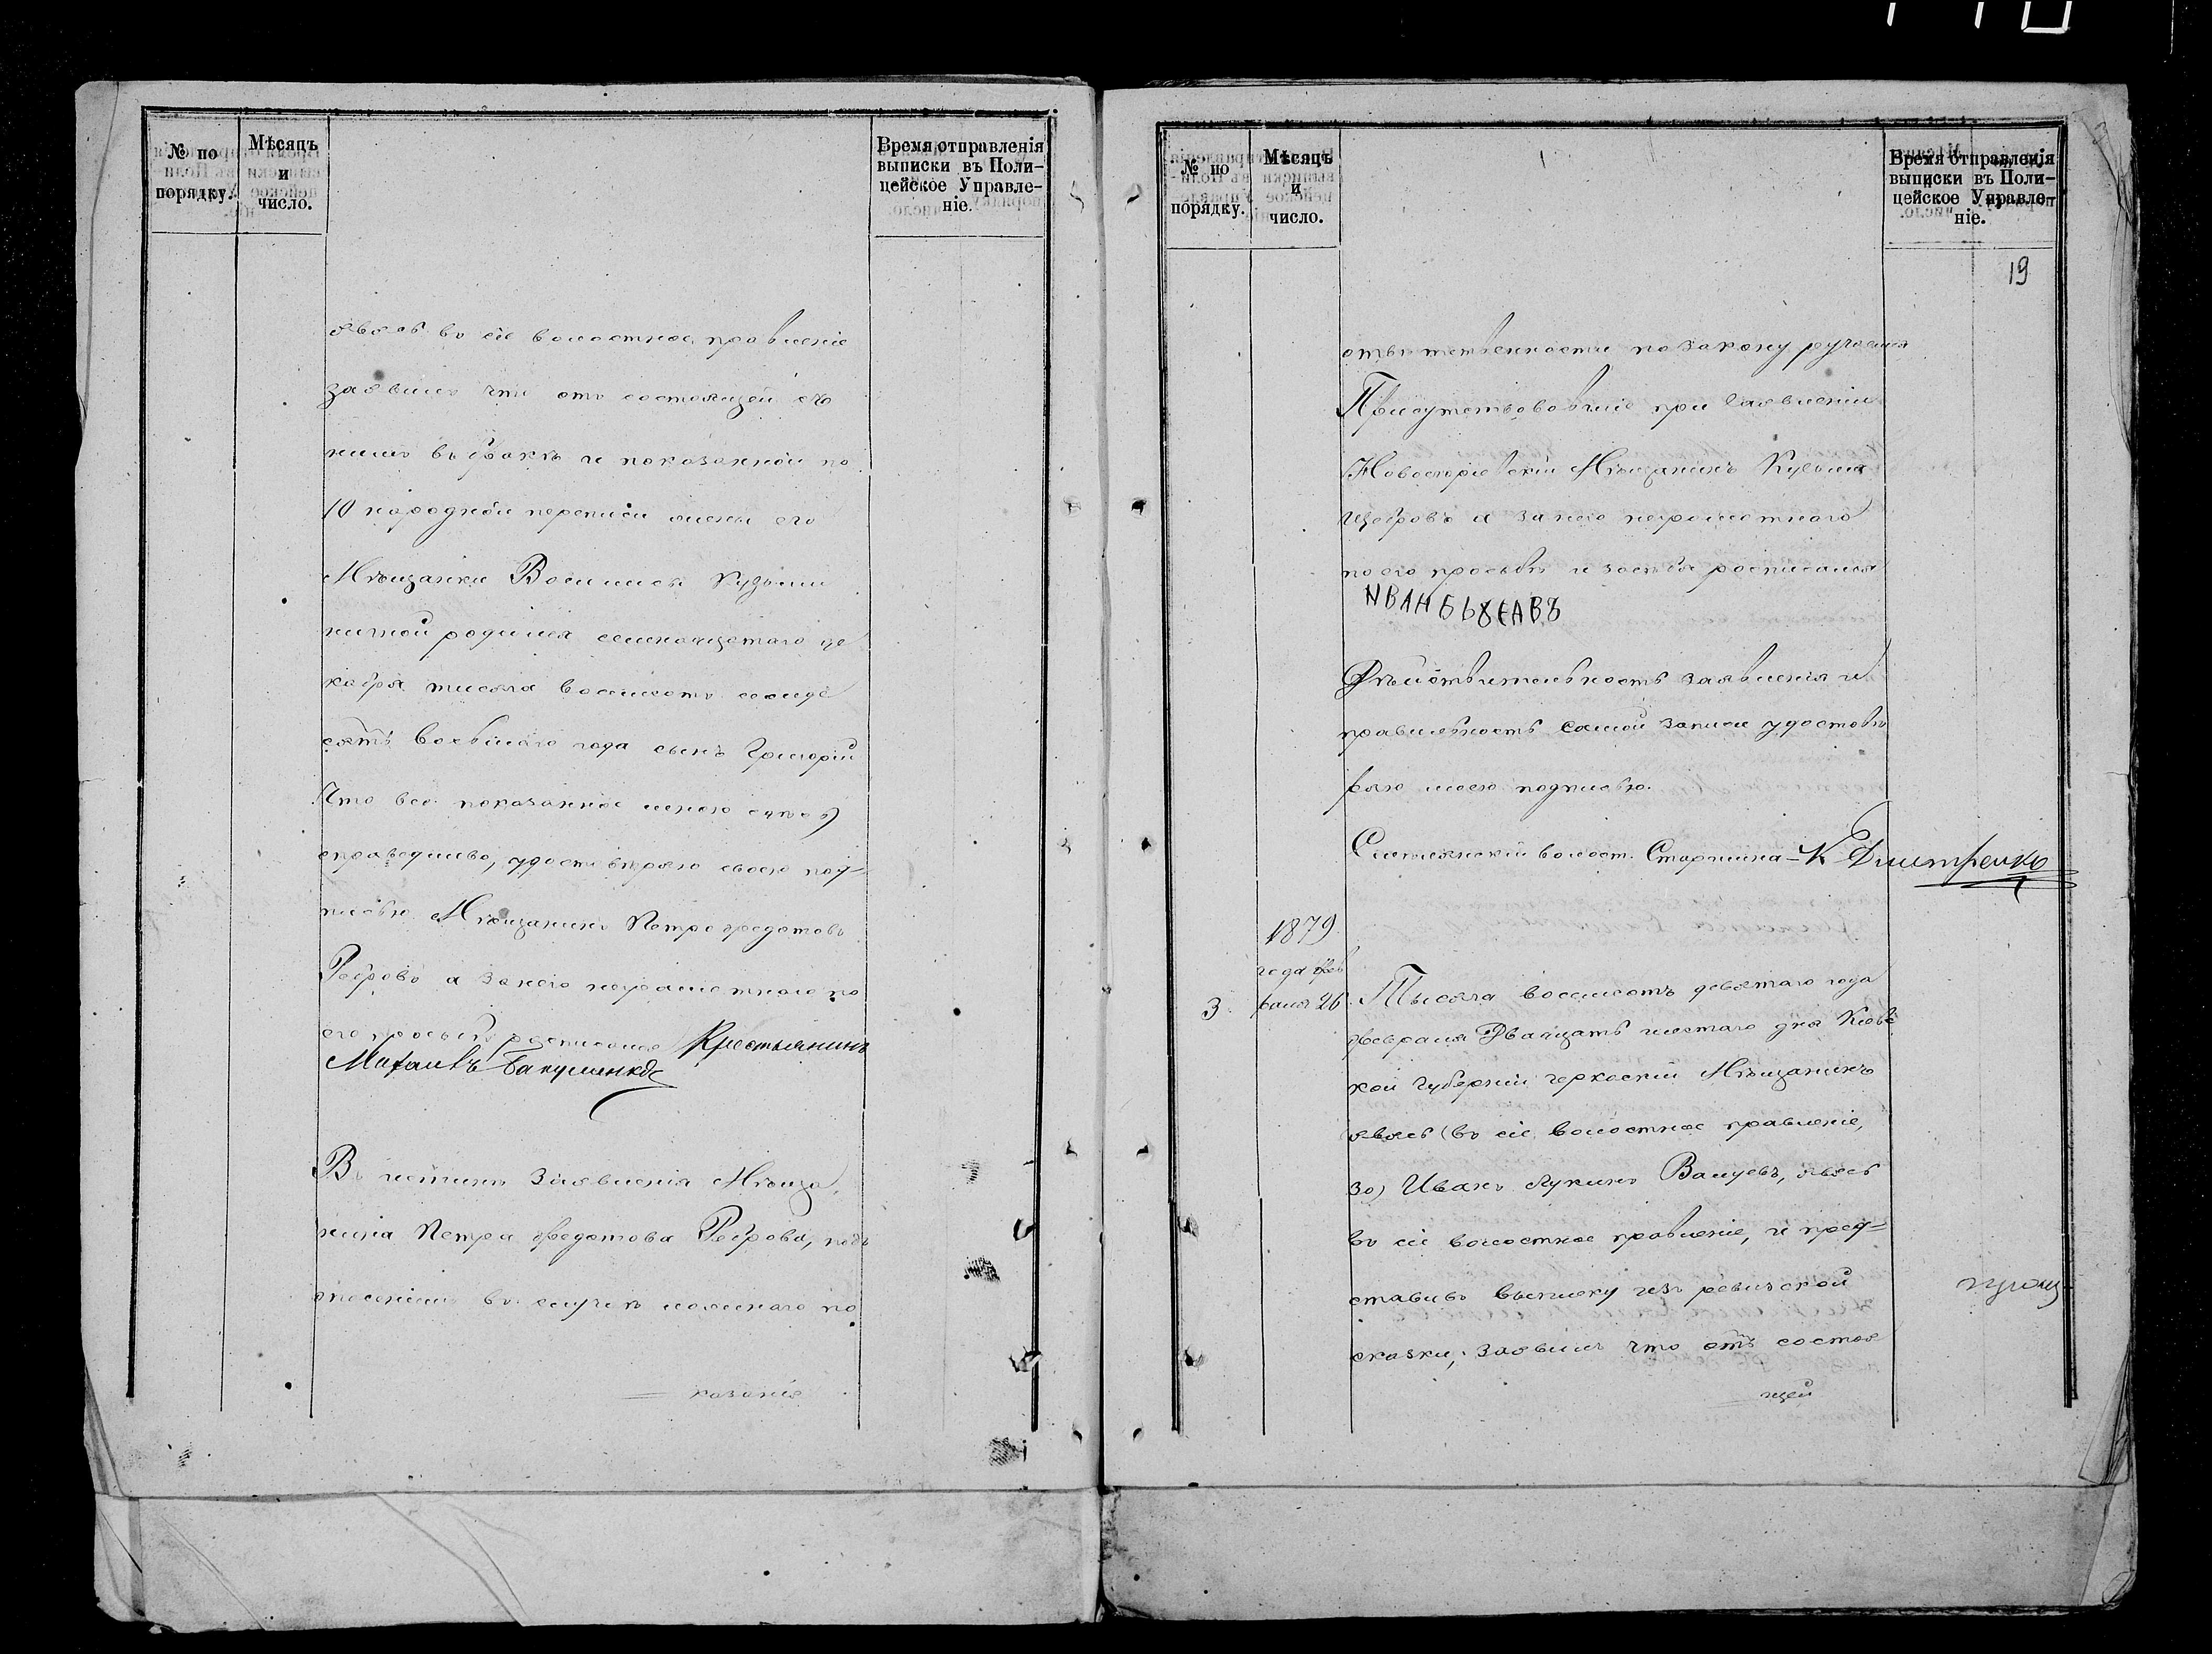 № по
порядку.
Мѣсяцъ
и
число.
Время отправленія
выписки въ Поли-
цейское Управле-
ніе.
явясь во сіе волостное правленіе
заявилъ что отъ состоящей съ
нимъ въ бракѣ и показанной по
10 народной переписи жены его
Мѣщанки Василисы Кузьми
ничной родился семнадцатаго де
кабря тысяча восемсотъ семьде
сятъ восьмаго года сынъ Григорій
Что все показанное мною здѣсь
справедливо, удостовѣряю своею под-
писью Мѣщанинъ Петръ Федотовъ
Ребровъ а за него неграмотнаго по
его просьбѣ росписался Крестьянинъ
Михаилъ
Въ истинѣ заявленія Мѣща
нина Петра Федотова Реброва, подъ
опасеніемъ въ случаѣ ложнаго по
казанія
№ по
порядку.
Мѣсяцъ
и
число.
Время отправленія
выписки въ Поли-
цейское Управле-
ніе.
19
отвѣтственности по закону ручаемся
Присутствовавшіе при заявленіи
Мѣщанинъ Кузьма
а за него неграмотнаго
по его просьбѣ и за себя росписался
ИВАН
Дѣйствительность заявленія и
правильность самой записи удостовѣ
ряю моею подписью.
волост. Старшина - К Дмитренко
1879
года фев
3 раля 26. Тысяча восемсотъ девятаго года
февраля Двадцать шестаго дня Кіевс
кой Губерніи черкаскій Мѣщанинъ
явясь (въ сіе волостное правленіе,
за) Иванъ Лукинъ явясь
во сіе волостное правленіе, и пред-
ставивъ выписку изъ ревизской
сказки, заявилъ что отъ состоя
щей